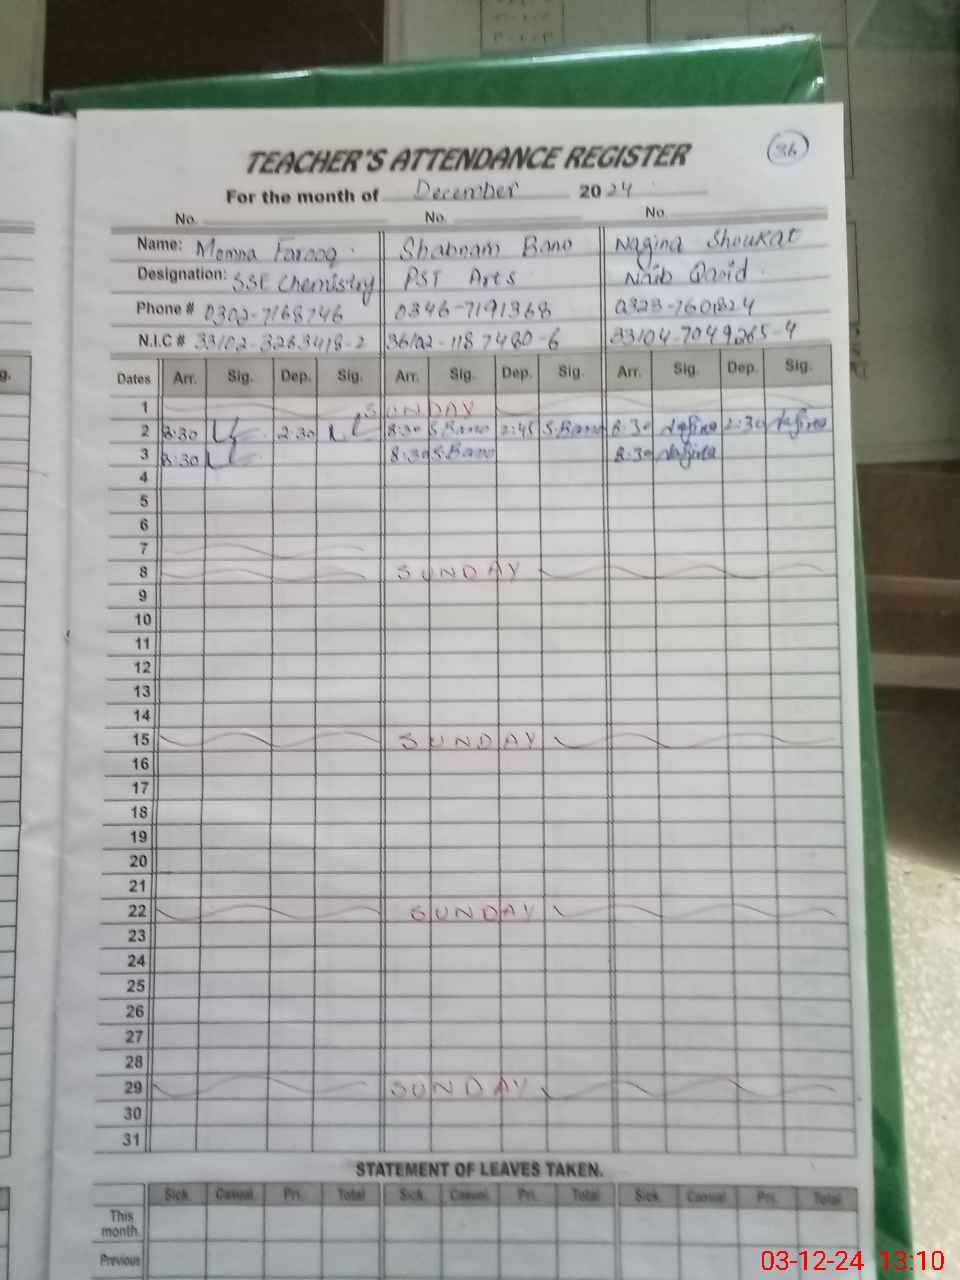 TEACHER'S ATTENDANCE REGISTER 36
For the month of December 2024
No. No. No.
Name: Momna Farooq. Shabnam Bano Nagina Shoukat
Designation: SSE Chemistry PST Arts Naib Qasid
Phone # 0302-7168746 0346-7191368 0323-7601824
N.I.C # 33102-3283418-2 36102-1187480-6 33104-7049265-4
Dates Arr. Sig. Dep. Sig. Arr. Sig. Dep. Sig. Arr. Sig. Dep. Sig.
1 SUNDAY
2 8:30 2:30 8:30 S.Bano 2:45 S.Bano 8:30 Nagina 2:30 Nagina
3 8:30 8:30 S.Bano 8:30 Nagina
4
5
6
7
8 SUNDAY
9
10
11
12
13
14
15 SUNDAY
16
17
18
19
20
21
22 SUNDAY
23
24
25
26
27
28
29 SUNDAY
30
31
STATEMENT OF LEAVES TAKEN.
Sick. Casual. Pri. Total Sick. Casual. Pri. Total Sick. Casual. Pri. Total
This
month.
Previous
03-12-24 13:10